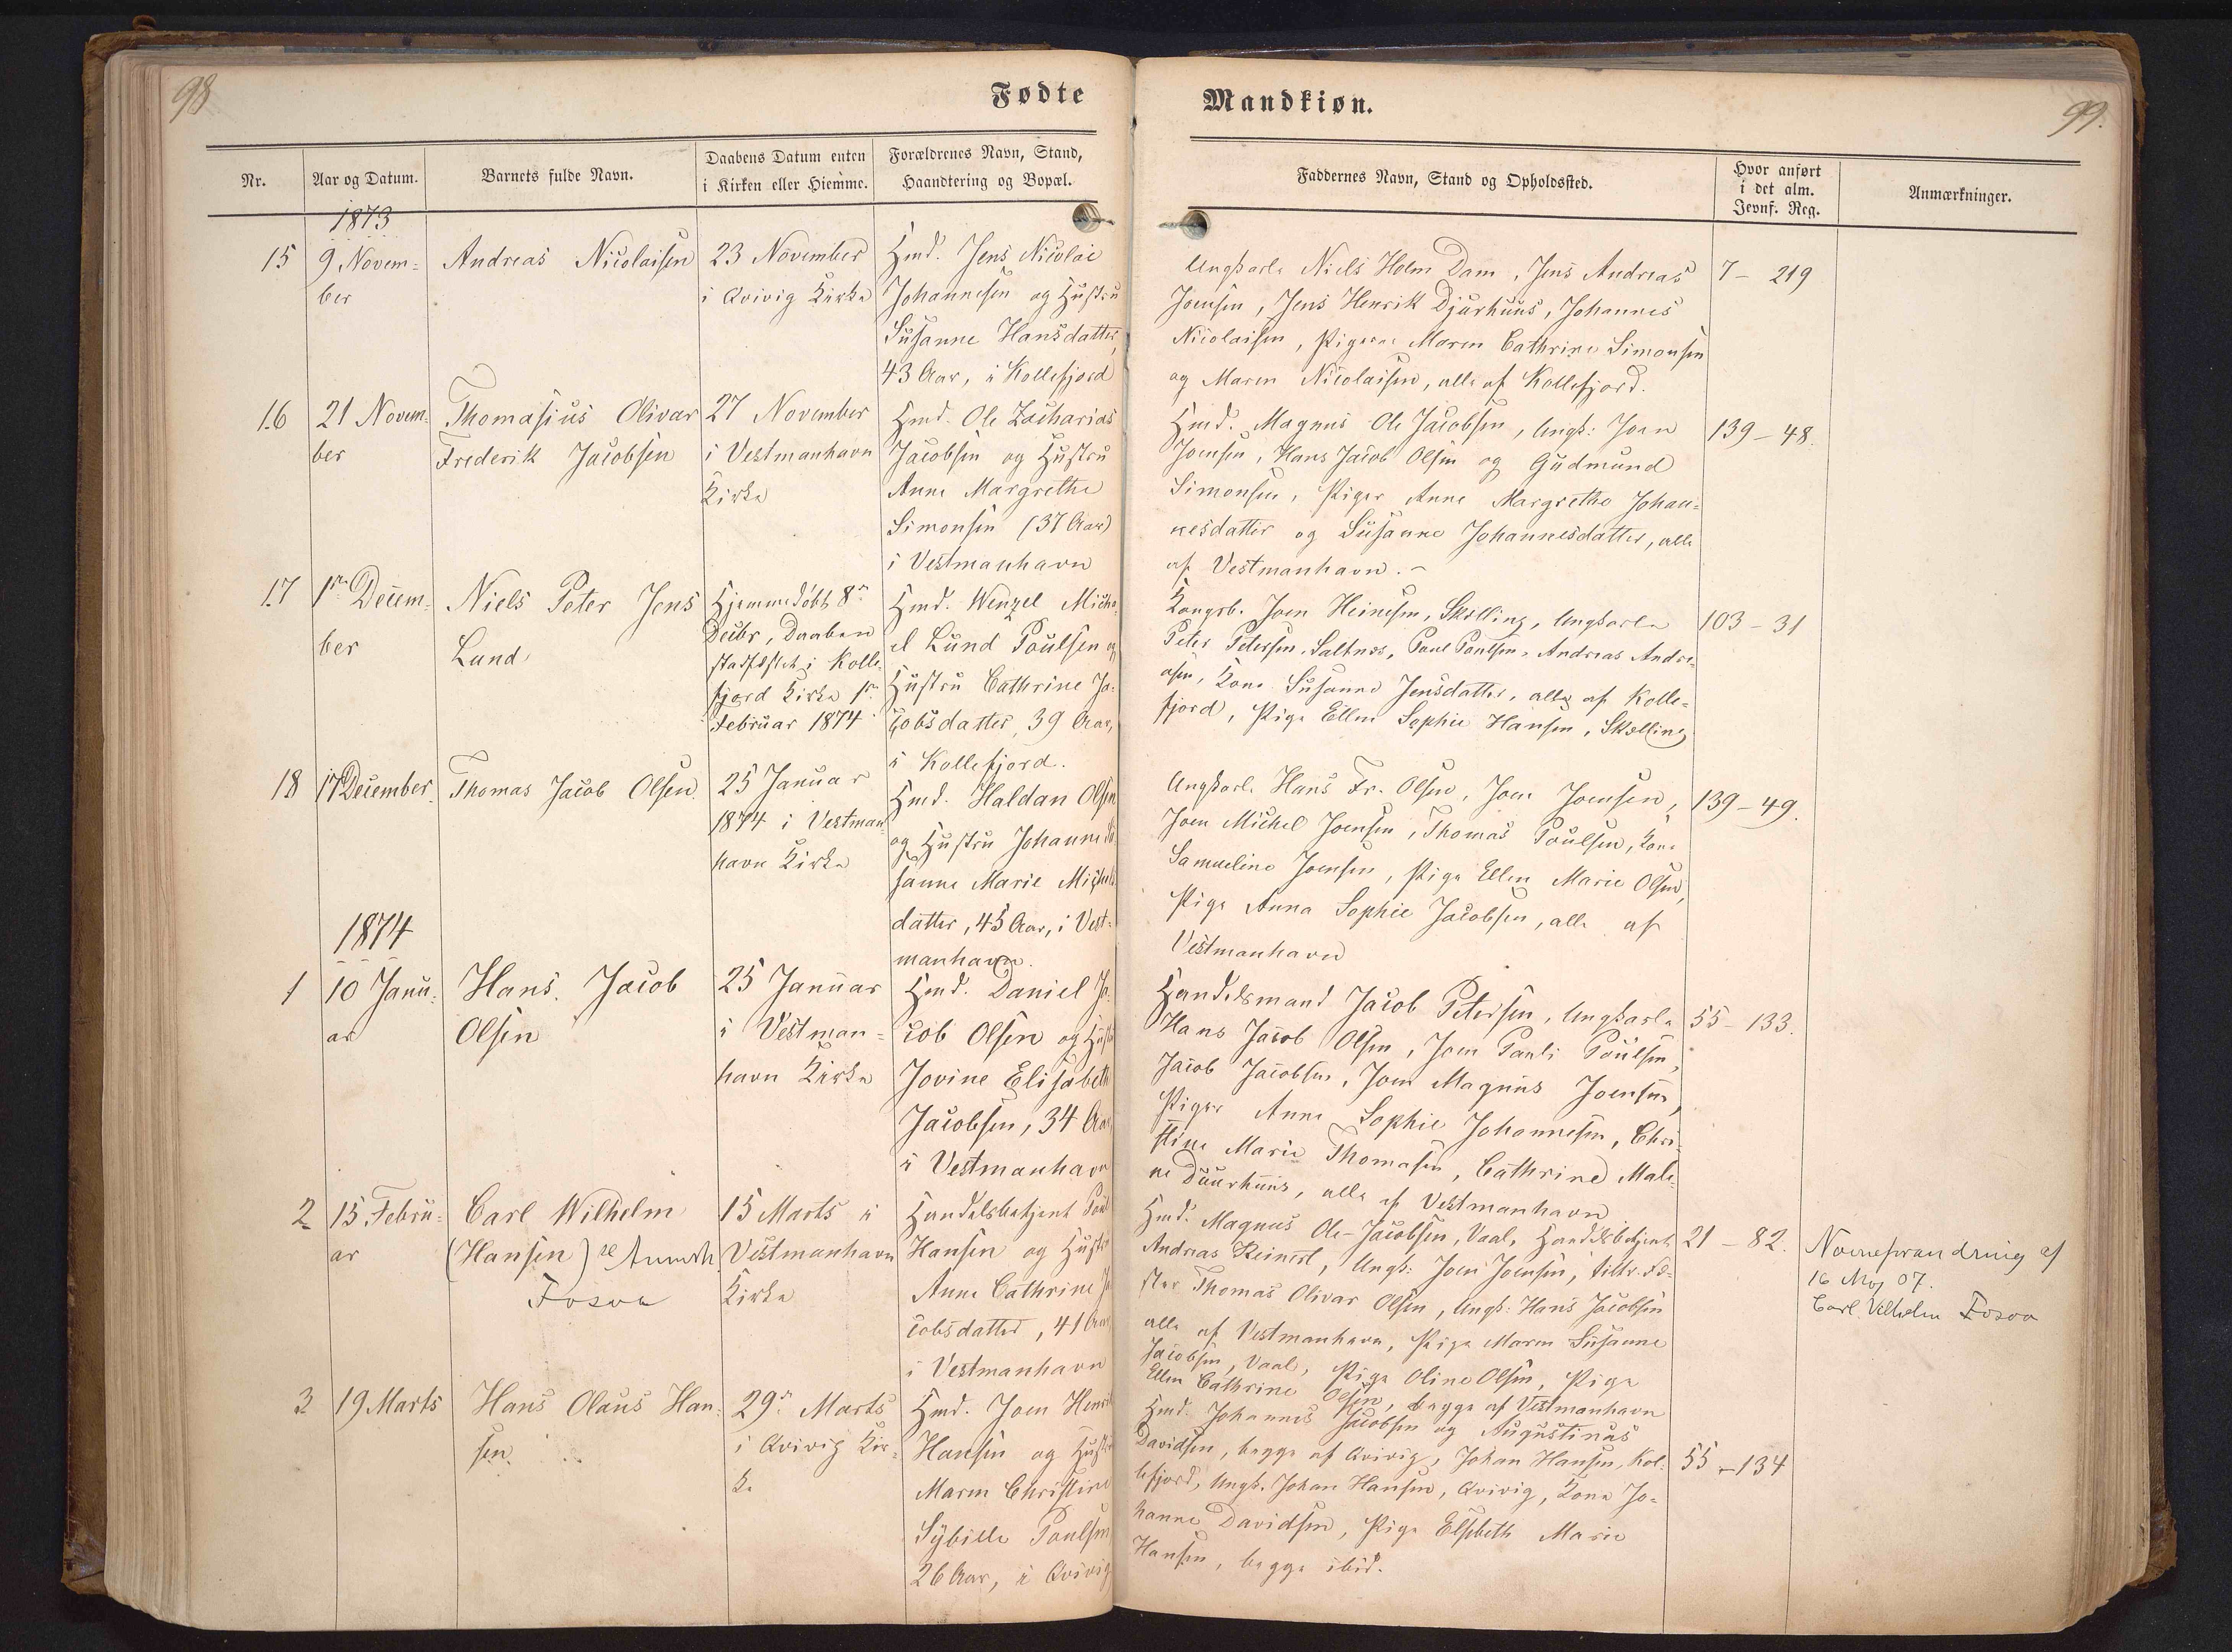 98
Fødte
Nr.
Aar og Datum.
Barnets fulde Navn.
Daabens Datum enten
i Kirken eller Hiemme.
Forældrenes Navn, Stand,
Haandtering og Bopæl.
1873
15
9 Novem-
ber
Andreas Nicolaisen
23 November
i Qvivig Kirke
Hmd. Jens Nicolai
Johannesen og Hustru
Susanne Hansdatter,
43 Aar, i Kollefjord
16
21 Novem-
ber
Thomasius Olivar
Frederik Jacobsen
27 November
i Vestmanhavn
Kirke
Hmd. Ole Zacharias
Jacobsen og Hustru
Anne Margrethe
Simonsen (37 Aar)
i Vestmanhavn
17
1ste Decem-
ber
Niels Peter Jens
Lund
Hjemmedøbt 8de
Decbr, Daaben
stadfæstet i Kolle-
fjord Kirke 1ste
Februar 1874
Hmd. Wenzel Micha-
el Lund Poulsen og
Hustru Cathrine Ja-
cobsdatter, 39 Aar,
i Kollefjord.
18
17 December
Thomas Jacob Olsen
25 Januar
1874 i Vestman-
havn Kirke
Hmd. Haldan Olsen
og Hustru Johanne Su-
sanne Marie Michels-
datter, 45 Aar, i Vest-
manhavn.
1874
1
10 Janu-
ar
Hans Jacob
Olsen
25 Januar
i Vestman-
havn Kirke
Hmd. Daniel Ja-
cob Olsen og Hustru
Jovine Elisabeth
Jacobsen, 34 Aar
i Vestmanhavn
2
15 Febru-
ar
Carl Wilhelm
(Hansen) se Anmrk
Fosaa
15 Marts i
Vestmanhavn
Kirke
Handelsbetjent Poul
Hansen og Hustru
Anne Cathrine Ja-
cobsdatter, 41 Aar
i Vestmanhavn
3
19 Marts
Hans Olaus Han-
sen
29de Marts
i Qvivig Kir-
ke
Hmd. Joen Henrik
Hansen og Hustru
Maren Christine
Sybille Poulsen
26 Aar, i Qvivig
Mandkiøn.
99.
Faddernes Navn, Stand og Opholdssted.
Hvor anført
i det alm.
Jevnf. Reg.
Anmærkninger.
Ungkarle Niels Holm Dam, Jens Andreas
Joensen, Jens Henrik Djurhuus, Johannes
Nicolaisen, Pigerne Maren Cathrine Simonsen
og Maren Nicolaisen, alle af Kollefjord.
7 - 219
Hmd. Magnus Ole Jacobsen, Ungk: Joen
Joensen, Hans Jacob Olsen og Gudmund
Simonsen, Piger Anne Margrethe Johan-
nesdatter og Susanne Johannesdatter, alle
af Vestmanhavn. -
139 - 48.
Kongsb. Joen Heinesen, Skelling, Ungkarle
Peter Petersen, Saltnæs, Poul Poulsen, Andreas Andre-
asen, Kone Susanne Jensdatter, alle af Kolle-
fjord, Pige Ellen Sophie Hansen, Skælling
103 - 31
Ungkarle Hans Fr. Olsen, Joen Joensen,
Joen Michel Joensen, Thomas Poulsen, Kone
Samueline Joensen, Pige Ellen Marie Olsen,
Pige Anna Sophie Jacobsen, alle af
Vestmanhavn
139 - 49.
Handelsmand Jacob Petersen, Ungkarle
Hans Jacob Olsen, Joen Pauli Poulsen,
Jacob Jacobsen, Joen Magnus Joensen,
Piger Anne Sophie Johannesen, Chri-
stine Marie Thomasen, Cathrine Male-
ne Duurhuus, alle af Vestmanhavn
55 - 133.
Hmd. Magnus Ole Jacobsen, Vaal, Handelsbetjent
Andreas Reinert, Ungk: Joen Joensen,
Thomas Olivar Olsen, Ungk: Hans Jacobsen
alle af Vestmanhavn, Pige Maren Susanne
Jacobsen, Vaal, Pige Oline Olsen, Pige
Ellen Cathrine Olsen, begge af Vestmanhavn
21 - 82.
Navneforandring af
16 Maj 07.
Carl Vilhelm Fosaa
Hmd. Johannes Jacobsen og Augustinus
Davidsen, begge af Qvivig, Johan Hansen, Kol-
lefjord, Ungk. Johan Hansen, Qvivig, Kone Jo-
hanne Davidsen, Pige Elsebeth Marie
Hansen, begge ibid.
55 - 134